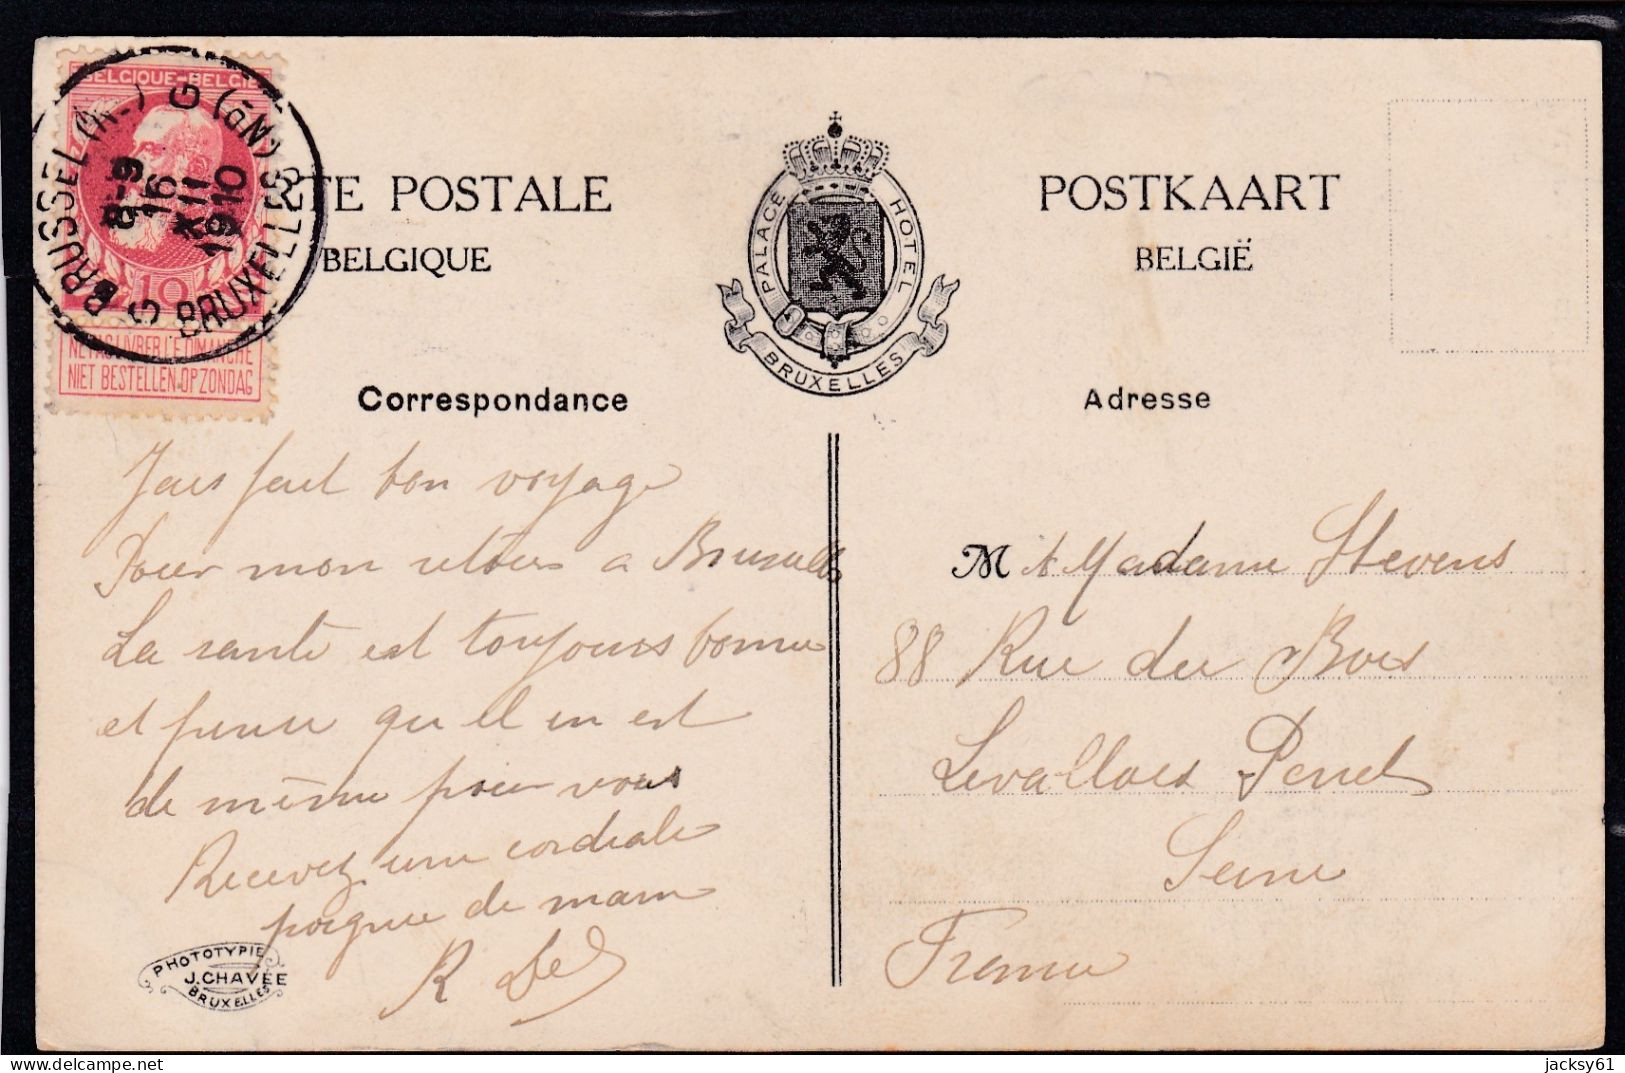 BELGIQUE-BELGIË
10
NE PAS LIVRER LE DIMANCHE
NIET BESTELLEN OP ZONDAG
BRUSSEL (N-) G (QN) BRUXELLES G
8-9
16
XII
1910
RTE POSTALE
BELGIQUE
PALACE HOTEL
BRUXELLES
POSTKAART
BELGIË
Correspondance
Jais fait bon voyage
Pour mon retour a Bruxelles
La sante est toujours bonne
et pense qu il en est
de même pour vous
Recevez une cordiale
poignee de main
R
PHOTOTYPIE
J. CHAVÉE
BRUXELLES
Adresse
M et Madame Stevens
88 Rue du Bois
Levallois Perret
Seine
France
jacksy61